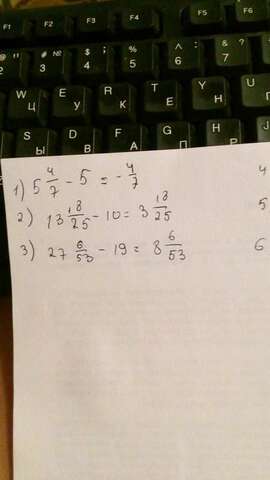 F1 F2 F3 F4 F5 F6 F7
@ " 2 # № 3 $ ; 4 % 5 ^ : 6 & ? 7
W Ц E У R К T Е Y Н U
S Ы D В F А G П H
1) 5 4/7 - 5 = - 4/7
2) 13 18/25 - 10 = 3 18/25
3) 27 6/53 - 19 = 8 6/53
4
5
6